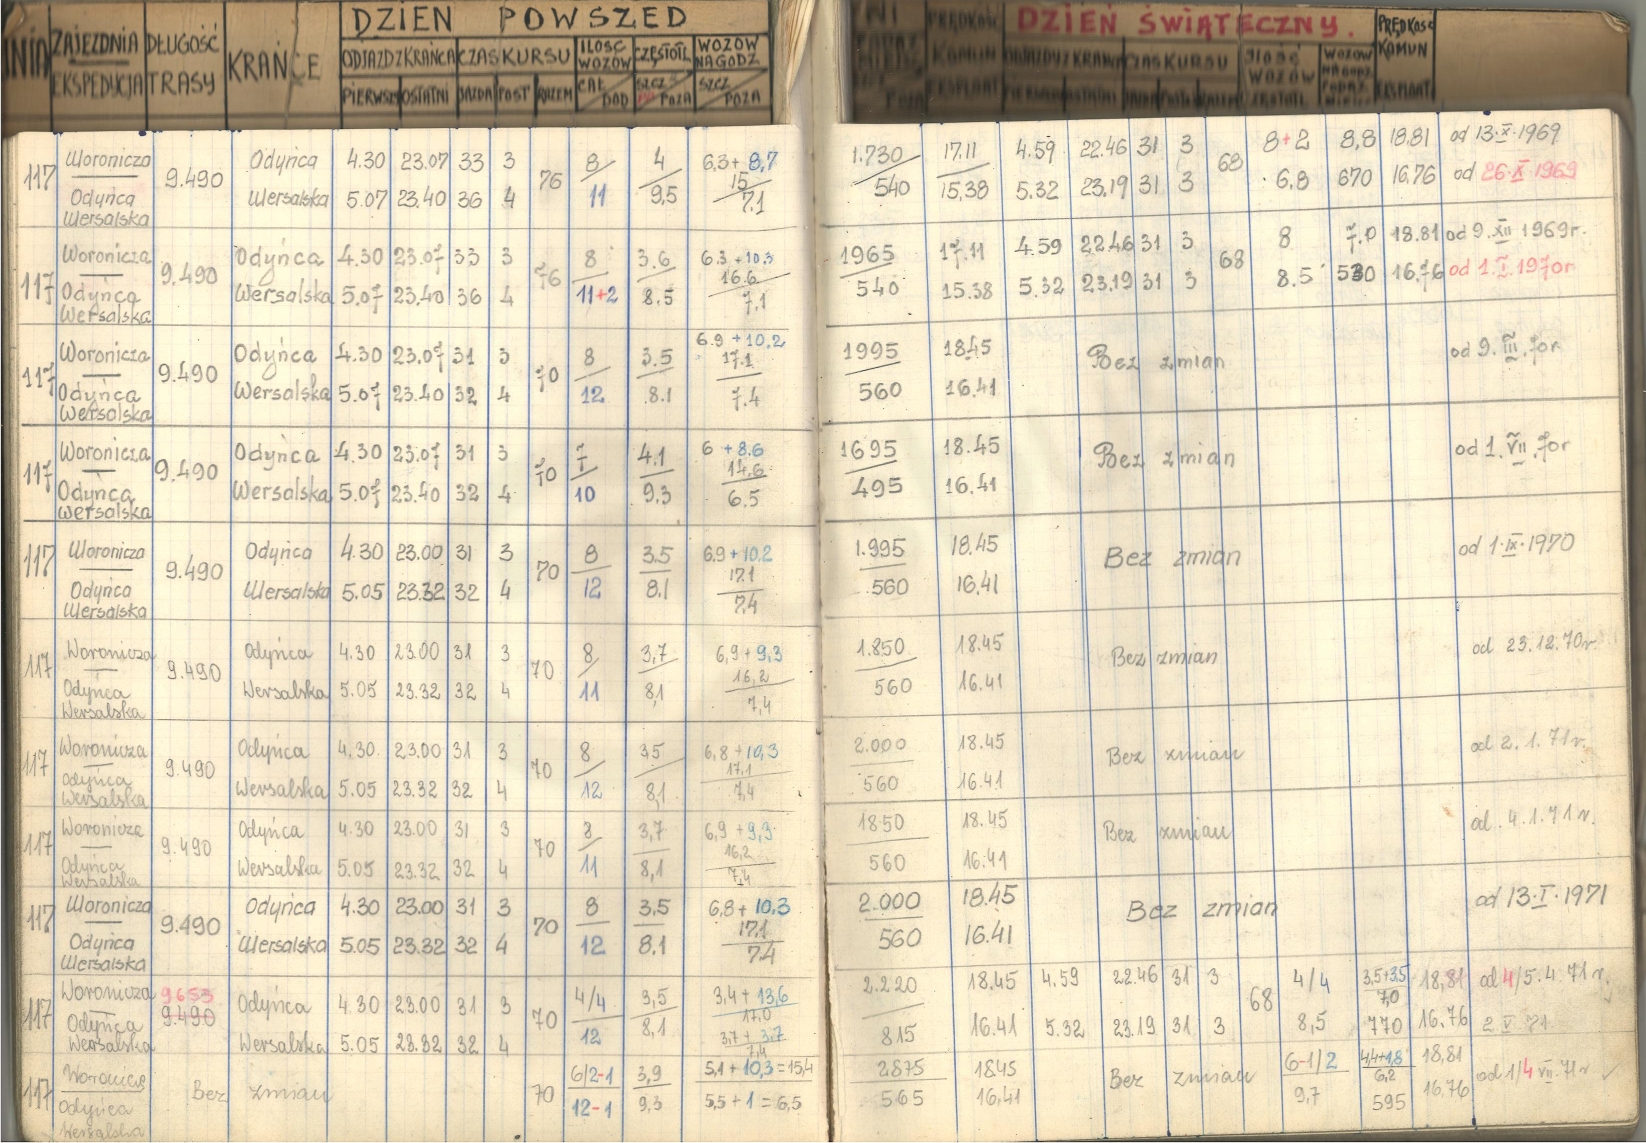 DZIEŃ POWSZED
DZIEŃ ŚWIĄTECZNY.
ZAJEZDNIA DŁUGOŚĆ KRAŃCE ODJAZD Z KRAŃCA CZAS KURSU ILOŚĆ WOZÓW CZĘSTOTL WOZÓW NA GODZ
EKSPEDYCJA TRASY PIERWSZY OSTATNI JAZDA POST RAZEM CAŁ DOD SZCZ POZA SZCZ POZA
PRĘDKOŚĆ KOMUN EKSPLOAT
117 Woronicza 9.490 Odyńca 4.30 23.07 33 3 76 8 4 6,3+8,7 1.730 17.11 4.59 22.46 31 3 68 8+2 8,8 18.81 od 13.X.1969
15
Odyńca Wersalska Wersalska 5.07 23.40 36 4 11 9,5 7.1 540 15,38 5.32 23.19 31 3 6,8 670 16,76 od 26.X.1969
117 Woronicza 9.490 Odyńca 4.30 23.07 33 3 76 8 3.6 6.3+10.3 1965 17.11 4.59 22.46 31 3 68 8 7.0 18.81 od 9.XII 1969r.
16.6
Odyńca Wersalska Wersalska 5.07 23.40 36 4 11+2 8.5 7.1 540 15.38 5.32 23.19 31 3 8.5 530 16.76 od 1.I.1970r
117 Woronicza 9.490 Odyńca 4.30 23.07 31 3 70 8 3.5 6.9+10.2 1995 18.45 Bez zmian od 9.III.70r
17.1
Odyńca Wersalska Wersalska 5.07 23.40 32 4 12 8.1 7.4 560 16.41
117 Woronicza 9.490 Odyńca 4.30 23.07 31 3 70 7 4.1 6+8.6 1695 18.45 Bez zmian od 1.VII.70r
14.6
Odyńca Wersalska Wersalska 5.07 23.40 32 4 10 9.3 6.5 495 16.41
117 Woronicza 9.490 Odyńca 4.30 23.00 31 3 70 8 3.5 6,9+10,2 1.995 18.45 Bez zmian od 1.IX.1970
17.1
Odyńca Wersalska Wersalska 5.05 23.32 32 4 12 8.1 7,4 560 16.41
117 Woronicza 9.490 Odyńca 4.30 23.00 31 3 70 8 3,7 6,9+9,3 1.850 18.45 Bez zmian od 23.12.70r
16,2
Odyńca Wersalska Wersalska 5.05 23.32 32 4 11 8,1 7,4 560 16.41
117 Woronicza 9.490 Odyńca 4.30. 23.00 31 3 70 8 3,5 6,8+10,3 2.000 18.45 Bez zmian od 2.1.71r
17,1
Odyńca Wersalska Wersalska 5.05 23.32 32 4 12 8,1 7,4 560 16.41
117 Woronicza 9.490 Odyńca 4.30 23.00 31 3 70 8 3,7 6,9+9,3 1850 18.45 Bez zmian od .4.1.71r.
16,2
Odyńca Wersalska Wersalska 5.05 23.32 32 4 11 8,1 7,4 560 16.41
117 Woronicza 9.490 Odyńca 4.30 23.00 31 3 70 8 3,5 6,8+10,3 2.000 18.45 Bez zmian od 13.I.1971
17,1
Odyńca Wersalska Wersalska 5.05 23.32 32 4 12 8.1 7.4 560 16.41
117 Woronicza 9653 9.490 Odyńca 4.30 23.00 31 3 70 4/4 3,5 3,4+13,6 2.220 18.45 4.59 22.46 31 3 68 4/4 3,5+3,5 18,81 od 4/5.4.71r.
17,0 7,0
Odyńca Wersalska Wersalska 5.05 23.32 32 4 12 8,1 3,7+3,7 815 16.41 5.32 23.19 31 3 8,5 770 16.76 2 V 71
7,4
117 Woronicza Bez zmian 70 6/2-1 3,9 5,1+10,3=15,4 2875 18.45 Bez zmian 6-1/2 4,4+1,8 18,81 od 1/4 VII.71r
6,2
Odyńca Wersalska 12-1 9,3 5,5+1=6,5 565 16,41 9,7 595 16,76